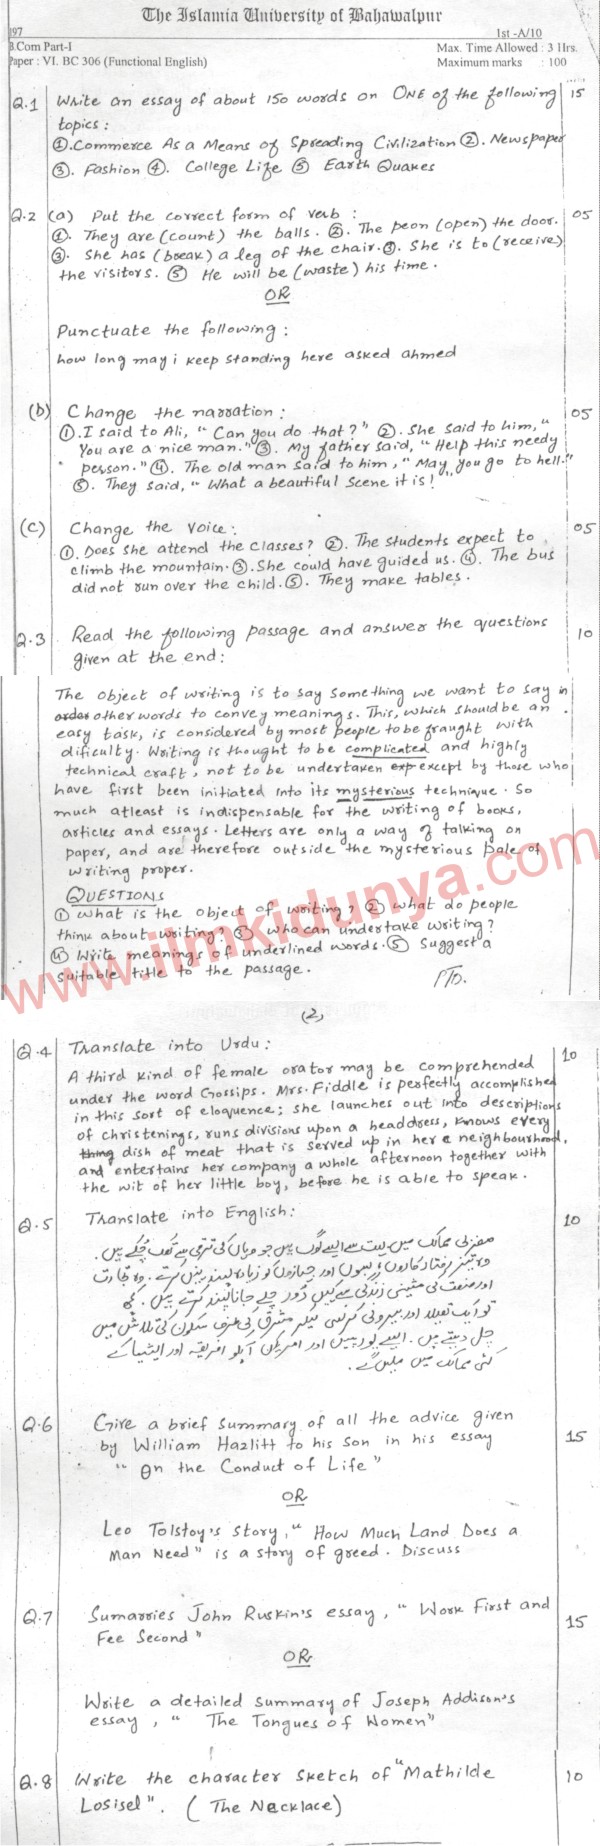 The Islamia University of Bahawalpur
197 1st -A/10
B.Com Part-I Max. Time Allowed : 3 Hrs.
Paper : VI. BC 306 (Functional English) Maximum marks : 100
Q.1 Write an essay of about 150 words on ONE of the following 15
topics :
①.Commerce As a Means of Spreading Civilization ②. Newspaper
③. Fashion ④. College Life ⑤ Earth Quakes
Q.2 (a) Put the correct form of verb : 05
①. They are (count) the balls. ②. The peon (open) the door.
③. She has (break) a leg of the chair. ④. She is to (receive)
the visitors. ⑤ He will be (waste) his time.
OR
Punctuate the following :
how long may i keep standing here asked ahmed
(b) Change the narration : 05
①.I said to Ali, "Can you do that ?" ②. She said to him, "
You are a nice man." ③. My father said, "Help this needy
person." ④. The old man said to him, "May you go to hell."
⑤. They said, "What a beautiful scene it is!"
(c) Change the voice : 05
①. Does she attend the classes? ②. The students expect to
climb the mountain. ③. She could have guided us. ④. The bus
did not run over the child. ⑤. They make tables.
Q.3 Read the following passage and answer the questions 10
given at the end :
The object of writing is to say something we want to say in
order other words to convey meanings. This, which should be an
easy task, is considered by most people to be fraught with
dificulty. Writing is thought to be complicated and highly
technical craft, not to be undertaken exp except by those who
have first been initiated into its mysterious technique. So
much atleast is indispensable for the writing of books,
articles and essays. Letters are only a way of talking on
paper, and are therefore outside the mysterious pale of
writing proper.
QUESTIONS
① What is the object of writing? ② what do people
think about writing? ③ who can undertake writing?
④ Write meanings of underlined words. ⑤ Suggest a
suitable title to the passage.
PTO.
www.ilmkidunya.com
(2)
Q.4 Translate into Urdu : 10
A third kind of female orator may be comprehended
under the word Gossips. Mrs. Fiddle is perfectly accomplished
in this sort of eloquence; she launches out into descriptions
of christenings, runs divisions upon a headdress, knows every
thing dish of meat that is served up in her neighbourhood,
and entertains her company a whole afternoon together with
the wit of her little boy, before he is able to speak.
Q.5 Translate into English : 10
مغربی ممالک میں بہت سے ایسے لوگ ہیں جو وہاں کی ترقی سے تھک چکے ہیں۔
وہ تیز رفتار کاروں، بسوں اور جہازوں کو زیادہ پسند نہیں کرتے۔ وہ تجارت
اور صنعت کی مشینی زندگی سے کہیں دور چلے جانا پسند کرتے ہیں۔ کچھ
تو ایک تھیلا اور بیرونی کرنسی لیکر مشرق کی طرف سکون کی تلاش میں
چل دیتے ہیں۔ ایسے یورپین اور امریکن آپکو افریقہ اور ایشیا کے
کئی ممالک میں ملیں گے۔
Q.6 Give a brief summary of all the advice given
by William Hazlitt to his son in his essay 15
"On the Conduct of Life"
OR
Leo Tolstoy's story, "How Much Land Does a
Man Need" is a story of greed. Discuss
Q.7 Sumarries John Ruskin's essay, "Work First and 15
Fee Second"
OR
Write a detailed summary of Joseph Addison's
essay, "The Tongues of Women"
Q.8 Write the character sketch of "Mathilde 10
Losisel". (The Necklace)